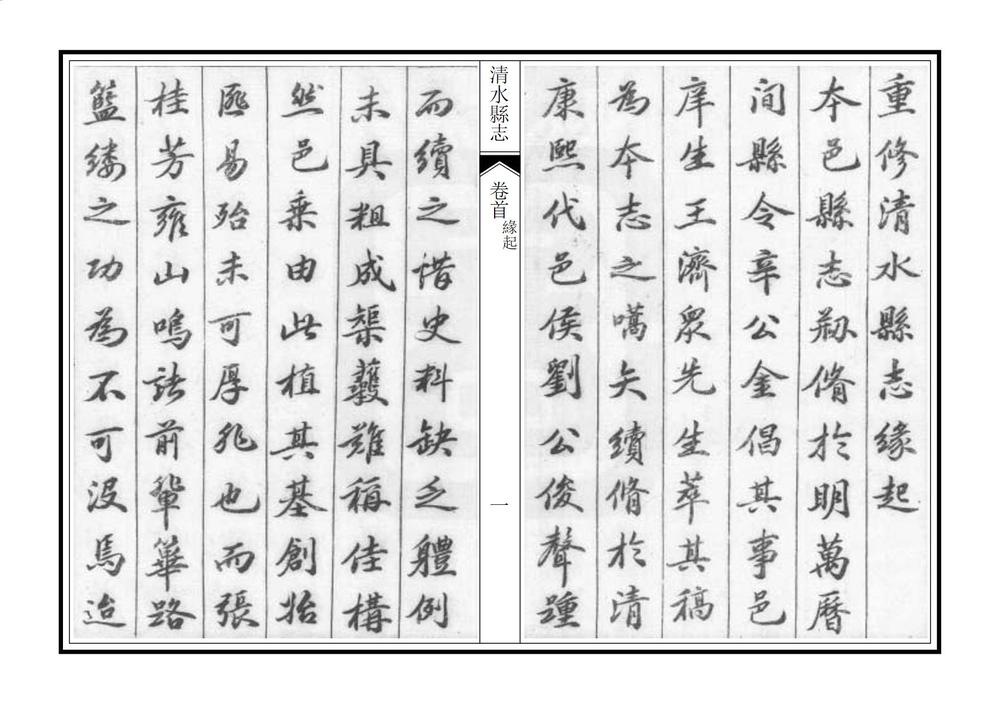 重修清水縣志緣起
本邑縣志刱脩於明萬曆
間縣令辛公金倡其事邑
庠生王濟眾先生萃其稿
為本志之嚆矢續脩於清
康熙代邑侯劉公俊聲踵
清水縣志
卷首
緣起
一
而續之惜史料缺乏體例
未具粗成榘蒦難稱佳構
然邑乘由此植其基創始
匪易殆未可厚非也而張
桂芳雍山鳴諸前輩蓽路
籃縷之功為不可沒焉迨